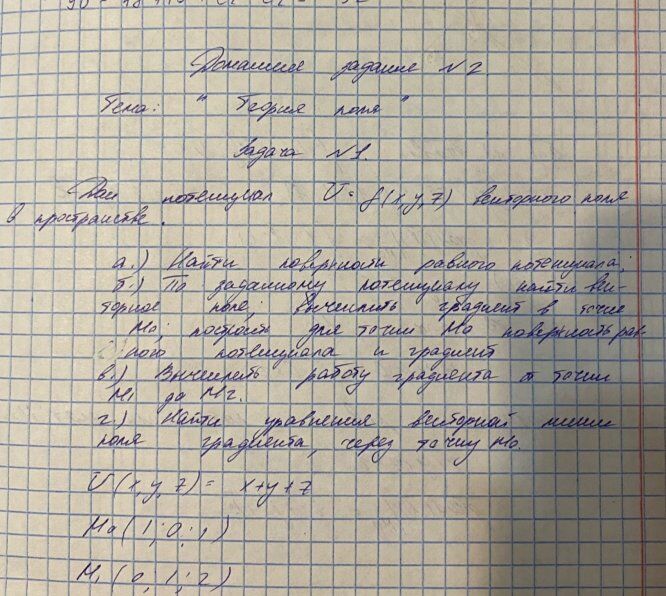 Домашнее задание №2
Тема: "Теория поля"
Задача №1.
Дан потенциал U = f(x,y,z) векторного поля
в пространстве.
а.) Найти поверхности равного потенциала;
б.) По заданному потенциалу найти век-
торное поле; вычислить градиент в точке
M0; построить для точки M0 поверхность рав-
ного потенциала и градиент
в.) Вычислить работу градиента от точки
M1 до M2.
г.) Найти уравнения векторной линии
поля градиента, через точку M0.
U(x,y,z) = x+y+z
M0(1;0;1)
M1(0;1;2)